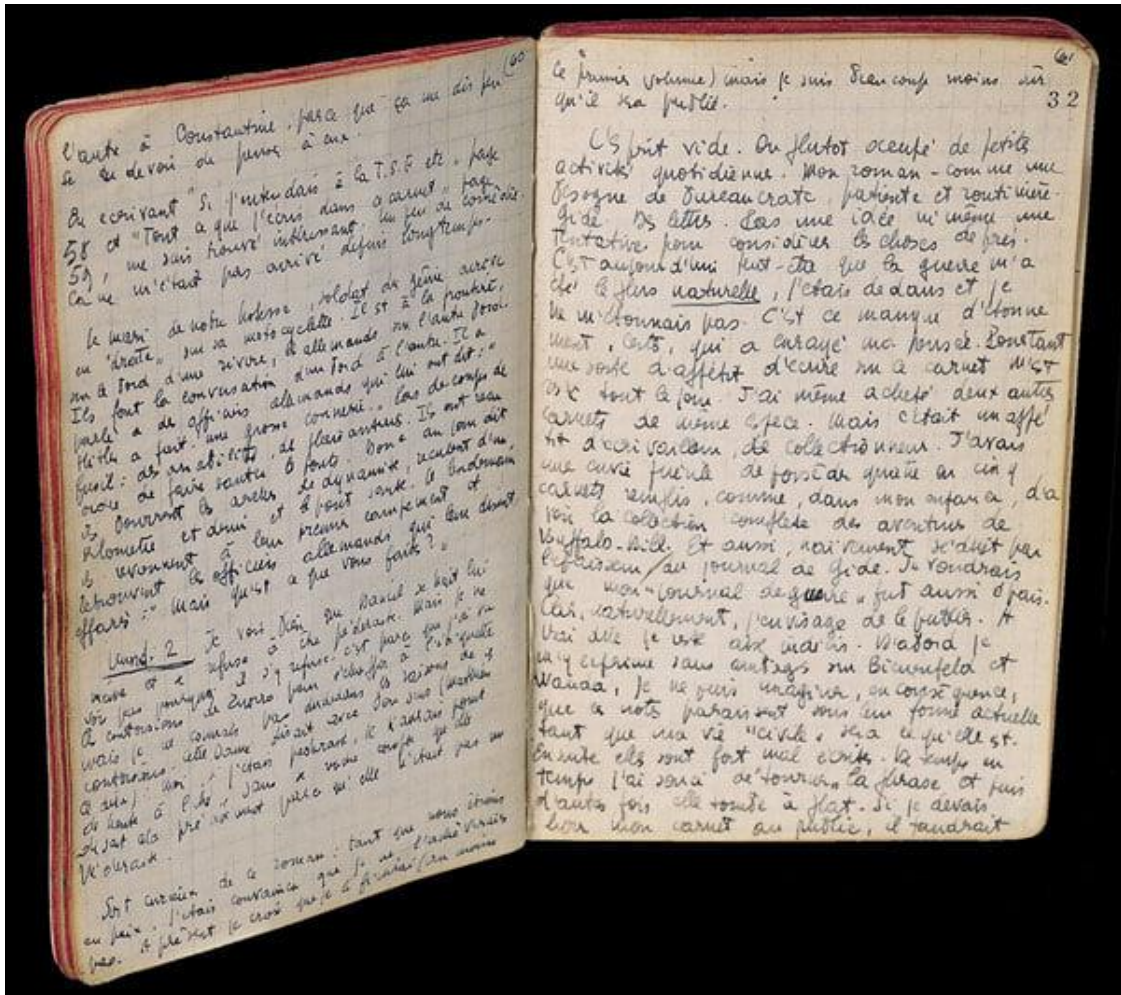 60
l'autre à Constantine, parce que ça me dis peu
se devoir de penser à eux.
En ecrivant "Si j'entendais à la T.S.F etc" page
58 et "Tout ce que j'écris dans ce carnet" page
59, me suis trouvé intéressant. un peu de comédie.
Ça ne m'était pas arrivé depuis longtemps.
Le mari de notre hôtesse, soldat du génie arrive
en "droite" sur sa motocyclette. Il est à la frontière,
sur le bord d'une rivière, les allemands sur l'autre bord.
Ils font la conversation d'un bord à l'autre. Il a
parlé a des officiers allemands qui lui ont dit : "
Hitler a fait une grosse connerie." Pas de coups de
fusil : des amabilités, des plaisanteries. Ils ont reçu
ordre de faire sauter les ponts. Donc au jour dit
ils bourrent les arches de dynamite, reculent d'un
kilomètre et demi et le pont saute. Le lendemain
ils reviennent à leur premier campement et
retrouvent les officiers allemands qui leur disent
effarés : "Mais qu'est ce que vous faites ?"
Mercredi 2 Je vois bien que Daniel se hait lui
même et se refuse à être pédéraste. Mais je ne
vois pas pourquoi il s'y refuse. c'est parce que j'ai vu
les contorsions de Zuorro pour échapper à l'étiquette
mais je ne connais pas davantage les raisons de ces
contorsions. Cette Dame disait avec bon sens
"moi, si j'étais pédéraste, je n'aurais point
de honte à l'être" sans se rendre compte qu'elle
disait cela précisément parce qu'elle n'était pas un
pédéraste.
Sort curieux de ce roman : tant que nous étions
en paix, j'étais convaincu que je ne l'achèverais
pas. A présent je crois que je le finirai (au moins
61
32
le premier volume) mais je suis beaucoup moins sûr
qu'il sera publié.
L'Esprit vide. Ou plutot occupé de petites
activités quotidiennes. Mon roman - comme une
besogne de bureaucrate, patiente et routinière.
Gide. Des lettres. Pas une idée ni même une
tentative pour considérer les choses de près.
C'est aujourd'hui peut-être que la guerre m'a
été le plus naturelle, j'étais dedans et je
ne m'étonnais pas. C'est ce manque d'étonne
ment, certes, qui a enrayé ma pensée. Pourtant
une sorte d'appétit d'écrire sur le carnet m'est
resté tout le jour. J'ai même acheté deux autres
carnets de même espèce. Mais c'était un appé
tit d'écrivailleur, de collectionneur. J'avais
une envie puérile de posséder quatre ou cinq
carnets remplis, comme, dans mon enfance, d'a
voir la collection complète des aventures de
Buffalo-Bill. Et aussi, naïvement, séduit par
l'épaisseur du journal de Gide. Je voudrais
que mon "journal de guerre" fut aussi épais.
Car, naturellement, j'envisage de le publier. A
vrai dire je reste assez indécis. D'abord je
m'y exprime sans ambages sur Bienenfeld et
Wanda, je ne puis imaginer, en conséquence,
que ces notes paraissent sous leur forme actuelle
tant que ma vie "civile" sera ce qu'elle est.
Ensuite elles sont fort mal écrites. De temps en
temps j'ai souci de "tourner" la phrase et puis
d'autres fois elle tombe à plat. Si je devais
livrer mon carnet au public, il faudrait